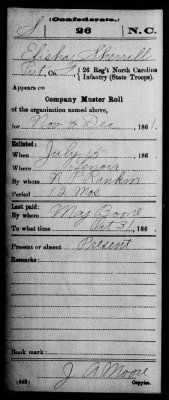 (Confederate.)
S 26 N.C.
Elisha Sherrill
Pvt, Co. 26 Reg't North Carolina
Infantry (State Troops).
Appears on
Company Muster Roll
of the organization named above,
for Nov & Dec, 186
Enlisted:
When July 15, 186
Where Lenoir
By whom N P Rankin
Period 12 Mos
Last paid:
By whom Maj Boone
To what time Oct 31, 186
Present or absent Present
Remarks:
Book mark:
J A Moore
(642) Copyist.